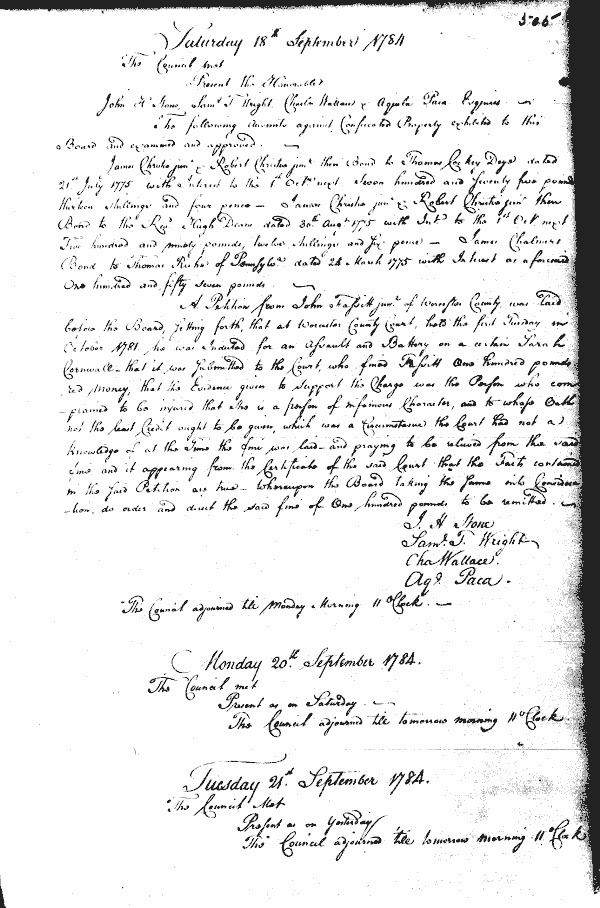 505
Saturday 18th September 1784
The Council met
Present the Honorable
John H Stone, Saml T Wright, Charles Wallace & Aquila Paca Esquires
The following Accounts against Confiscated Property exhibited to this
Board and examined and approved.
James Christie junr & Robert Christie junr their Bond to Thomas Cockey Deye dated
21st July 1775 with Interest to the 1st Octr next Seven hundred and Seventy five pounds
thirteen shillings and four pence – James Christie junr & Robert Christie junr their
Bond to the Revd Hugh Deane dated 30th Augt 1775 with Intt to the 1st Octr next
Five hundred and ninety pounds, twelve shillings and Six pence – James Chalmers
Bond to Thomas of Pennsylva dated 24 March 1775 with Interest as aforesaid
One hundred and fifty Seven pounds.
A Petition from John Fassitt junr of Worcester County was laid
before the Board, Setting forth, that at Worcester County Court, held the first Tuesday in
October 1781, he was Indicted for an Assault and Battery on a certain Sarah
Cornwall – that it was Submitted to the Court, who fined Fassitt One hundred pounds
red money, that the Evidence given to support the Charge was the Person who com
-plained to be injured that she is a person of infamous Character, and to whose Oath
not the least Credit ought to be given, which was a Circumstance the Court had not a
knowledge of at the Time the fine was laid – and praying to be relieved from the said
fine and it appearing from the Certificate of the said Court that the Facts contained
in the said Petition are true – Whereupon the Board taking the same into Considera
-tion, do order and direct the said fine of One hundred pounds to be remitted.
J. H Stone
Saml. T. Wright
Cha Wallace.
Aqa. Paca.
The Council adjourned till Monday Morning 11 oClock.
Monday 20th September 1784.
The Council met
Present as on Saturday.
The Council adjourned till tomorrow morning 11 oClock
Tuesday 21st September 1784.
The Council Met
Present as on Yesterday
The Council adjourned till tomorrow morning 11 oClock